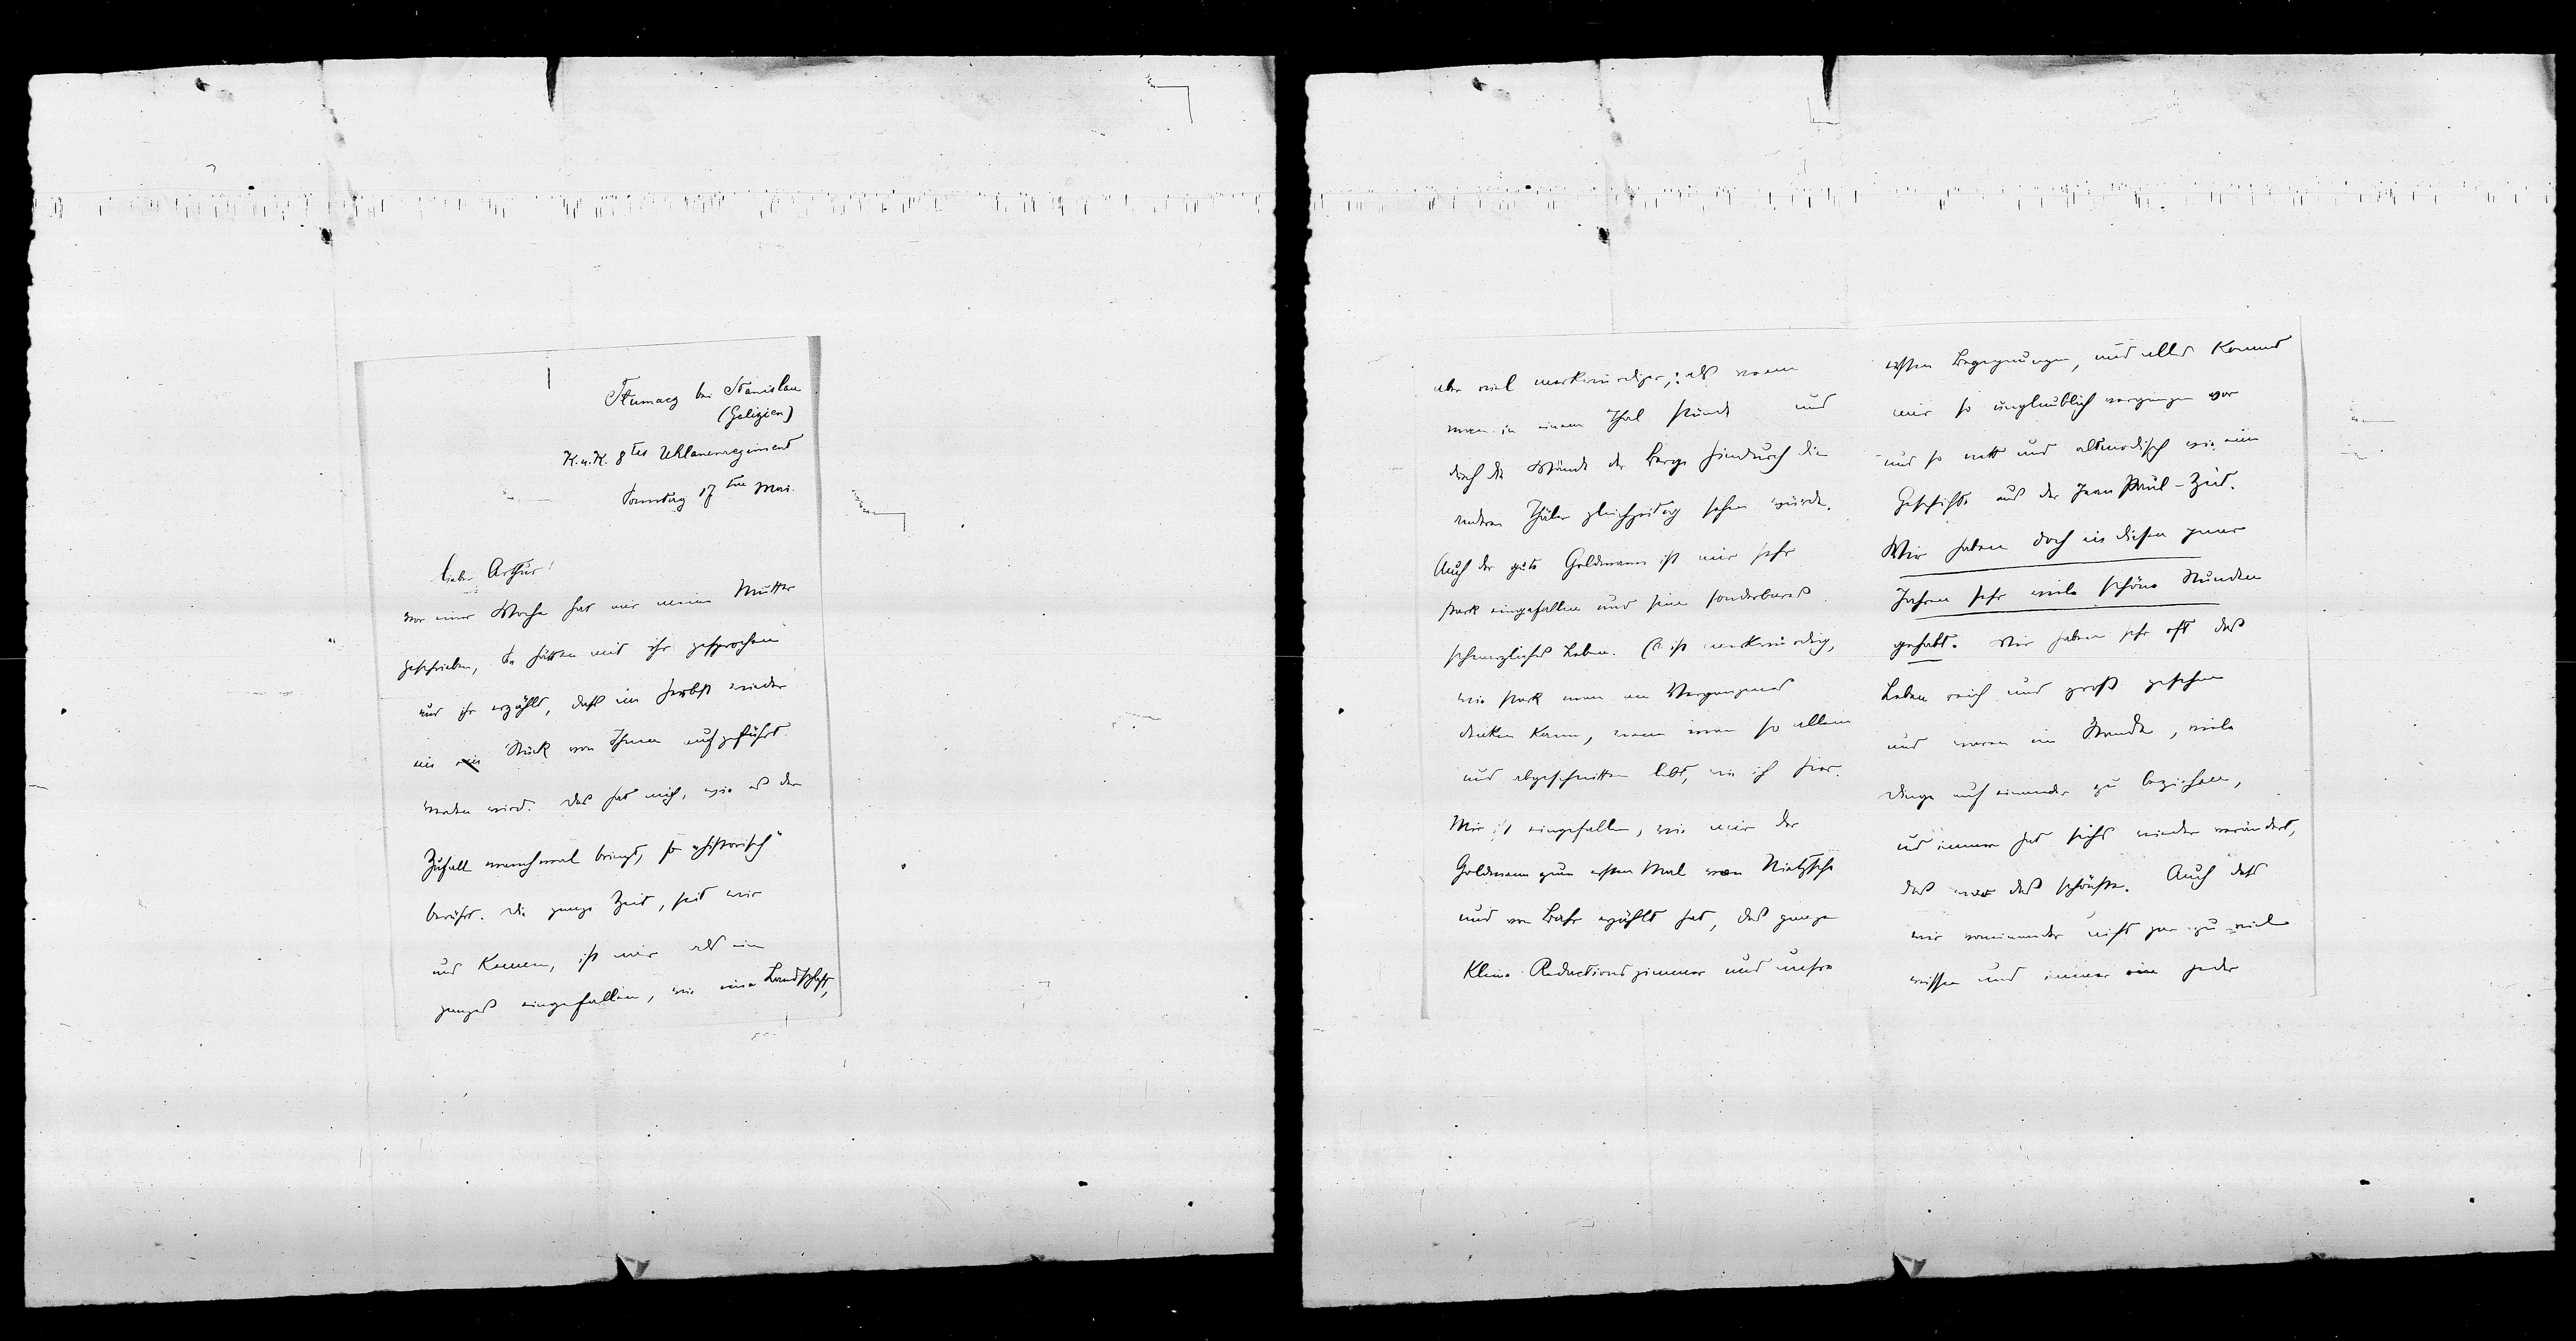 Tlumacz bei Stanislau
(Galizien)
K. u. K. 8tes Uhlanenregiment
Sonntag 17ten Mai.
lieber Arthur!
vor einer Woche hat mir meine Mutter
geschrieben, Sie hätten mit ihr gesprochen
und ihr erzählt, daß im Herbst wieder
ein Stück von Ihnen aufgeführt
werden wird. Das hat mich, wie es der
Zufall manchmal bringt, so „historisch"
berührt. Die ganze Zeit, seit wir
uns kennen, ist mir als ein
ganzes eingefallen, wie eine Landschaft,
aber viel merkwürdiger, : als wenn
man in einem Thal stünde und
durch die Wände der Berge hindurch die
anderen Thäler gleichzeitig sehen würde.
Auch der gute Goldmann ist mir sehr
stark eingefallen und sein sonderbares
schmerzliches Leben. Es ist merkwürdig,
wie stark man an Vergangenes
denken kann, wenn man so allein
und abgeschnitten lebt, wie ich hier.
Mir ist eingefallen, wie mir der
Goldmann zum ersten Mal von Nietzsche
und von Bahr erzählt hat, das ganze
kleine Redactionszimmer und unsre
ersten Begegnungen, und alles kommt
mir so unglaublich vergangen vor
und so nett und altmodisch wie eine
Geschichte aus der Jean Paul-Zeit.
Wir haben doch in diesen paar
Jahren sehr viele schöne Stunden
gehabt. Wir haben sehr oft das
Leben reich und groß gesehen
und waren im Stande, viele
Dinge auf einander zu beziehen,
und immer hat sichs wieder verändert,
das war das schönste. Auch dass
wir voneinander nicht gar zu viel
wissen und immer ein jeder